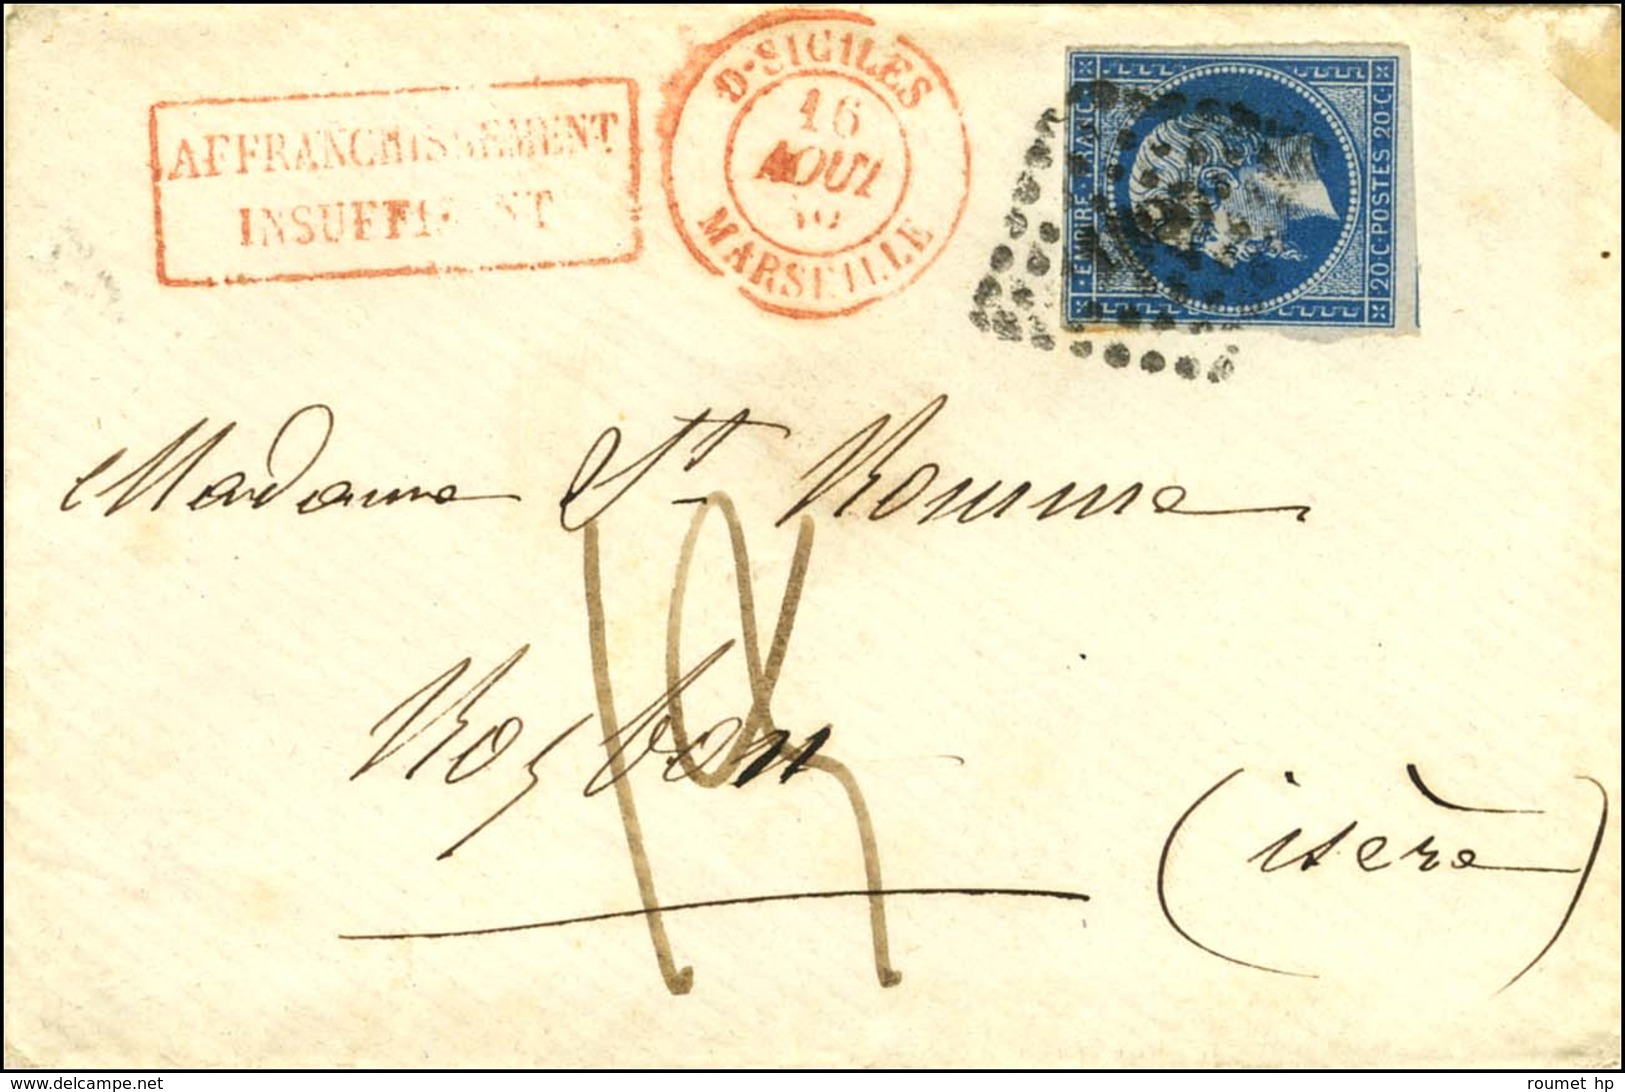 AFFRANCHISSEMENT
INSUFFISANT
D-SICILES
16
AOUT
MARSEILLE
EMPIRE · FRANC ·
20 C · POSTES 20 C ·
Madame St Romme
Roybon
(isère)
roumet hp